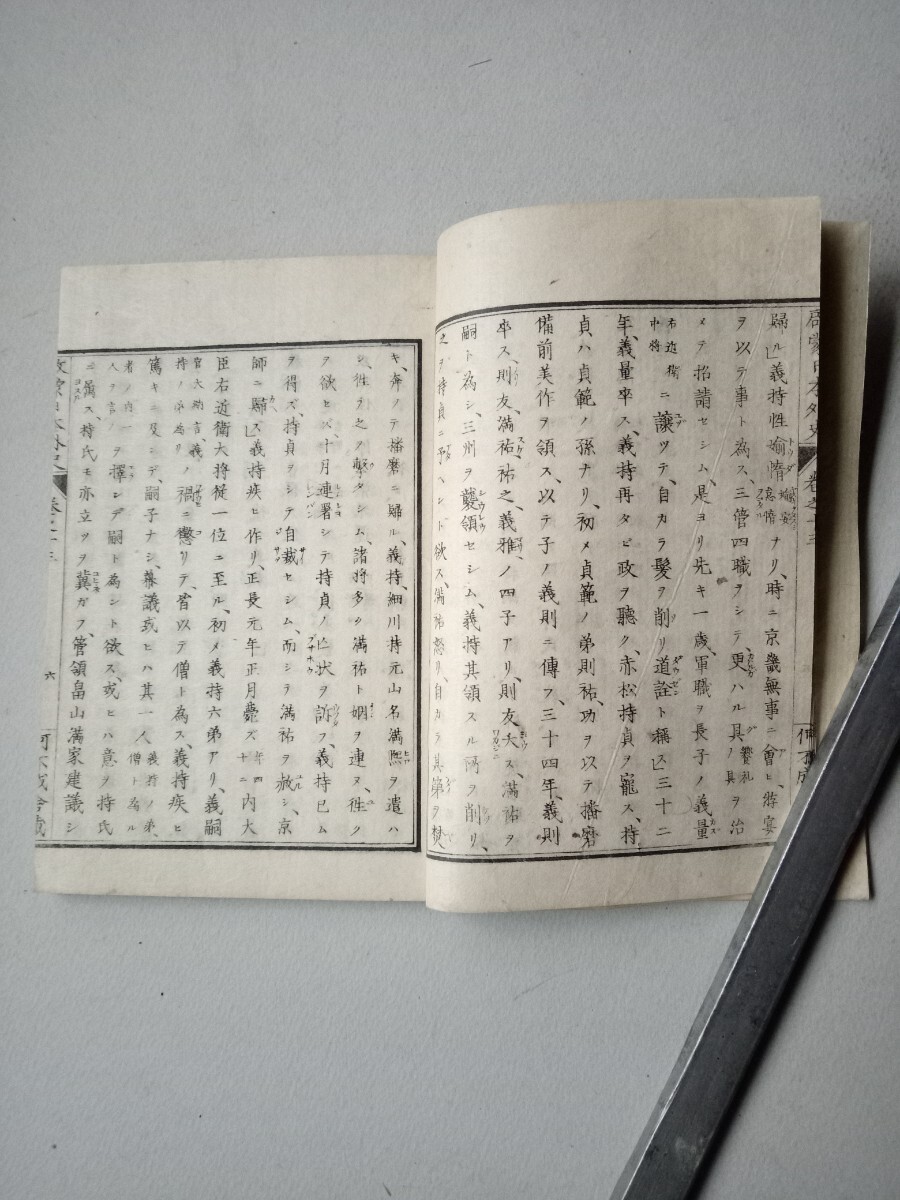 啓蒙日本外史 卷之十三
歸ル義持性媮惰ナリ、時ニ京畿無事ニ會ヒ、游宴
ヲ以テ事ト為ス、三管四職ヲシテ、更ハル具ヲ治
メテ招請セシム、是ヨリ先キ一歲、軍職ヲ長子ノ義量
右近衛中將ニ讓ツテ、自カラ髮ヲ削リ道詮ト稱ス三十二
年、義量卒ス、義持再タビ政ヲ聽ク、赤松持貞ヲ寵ス、持
貞ハ貞範ノ孫ナリ、初メ貞範ノ弟則祐、功ヲ以テ播磨
備前美作ヲ領ス、以テ子ノ義則ニ傳フ、三十四年、義則
卒ス、則友、滿祐祐之、義雅ノ四子アリ、則友夭ス、滿祐ヲ
嗣ト為シ、三州ヲ襲領セシム、義持其領スル所ヲ削リ、
之ヲ持貞ニ予ヘント欲ス、滿祐怒リ、自カラ其第ヲ焚
キ、奔ノテ播磨ニ歸ル、義持、細川持元山名滿熙ヲ遣ハ
シ、徃テ之ヲ擊タシム、諸將多ク滿祐ト姻ヲ連ヌ、徃ク
ヲ欲セス、十月連署シテ持貞ノ亡狀ヲ訴フ、義持已ム
ヲ得ズ、持貞ヲシテ自裁セシム、而シテ滿祐ヲ赦シ、京
師ニ歸ス義持疾ヒ作リ、正長元年正月薨ズ年四十二內大
臣右近衛大將從一位ニ至ル、初メ義持六弟アリ、義嗣
官大納言義持ノ承為リ禍ニ懲リテ、省以テ僧ト為ス、義持疾ヒ
篤キニ及シデ、嗣子ナシ、幕議或ヒハ其一人義持ノ弟、僧ト為ル
者ノ內一人ヲ言ノヲ擇ンデ嗣ト為シト欲ス、或ヒハ意ヲ持氏
ニ屬ス持氏モ亦立ツヲ冀ガフ、管領畠山滿家建議シ
啓蒙日本外史 卷之十三 六